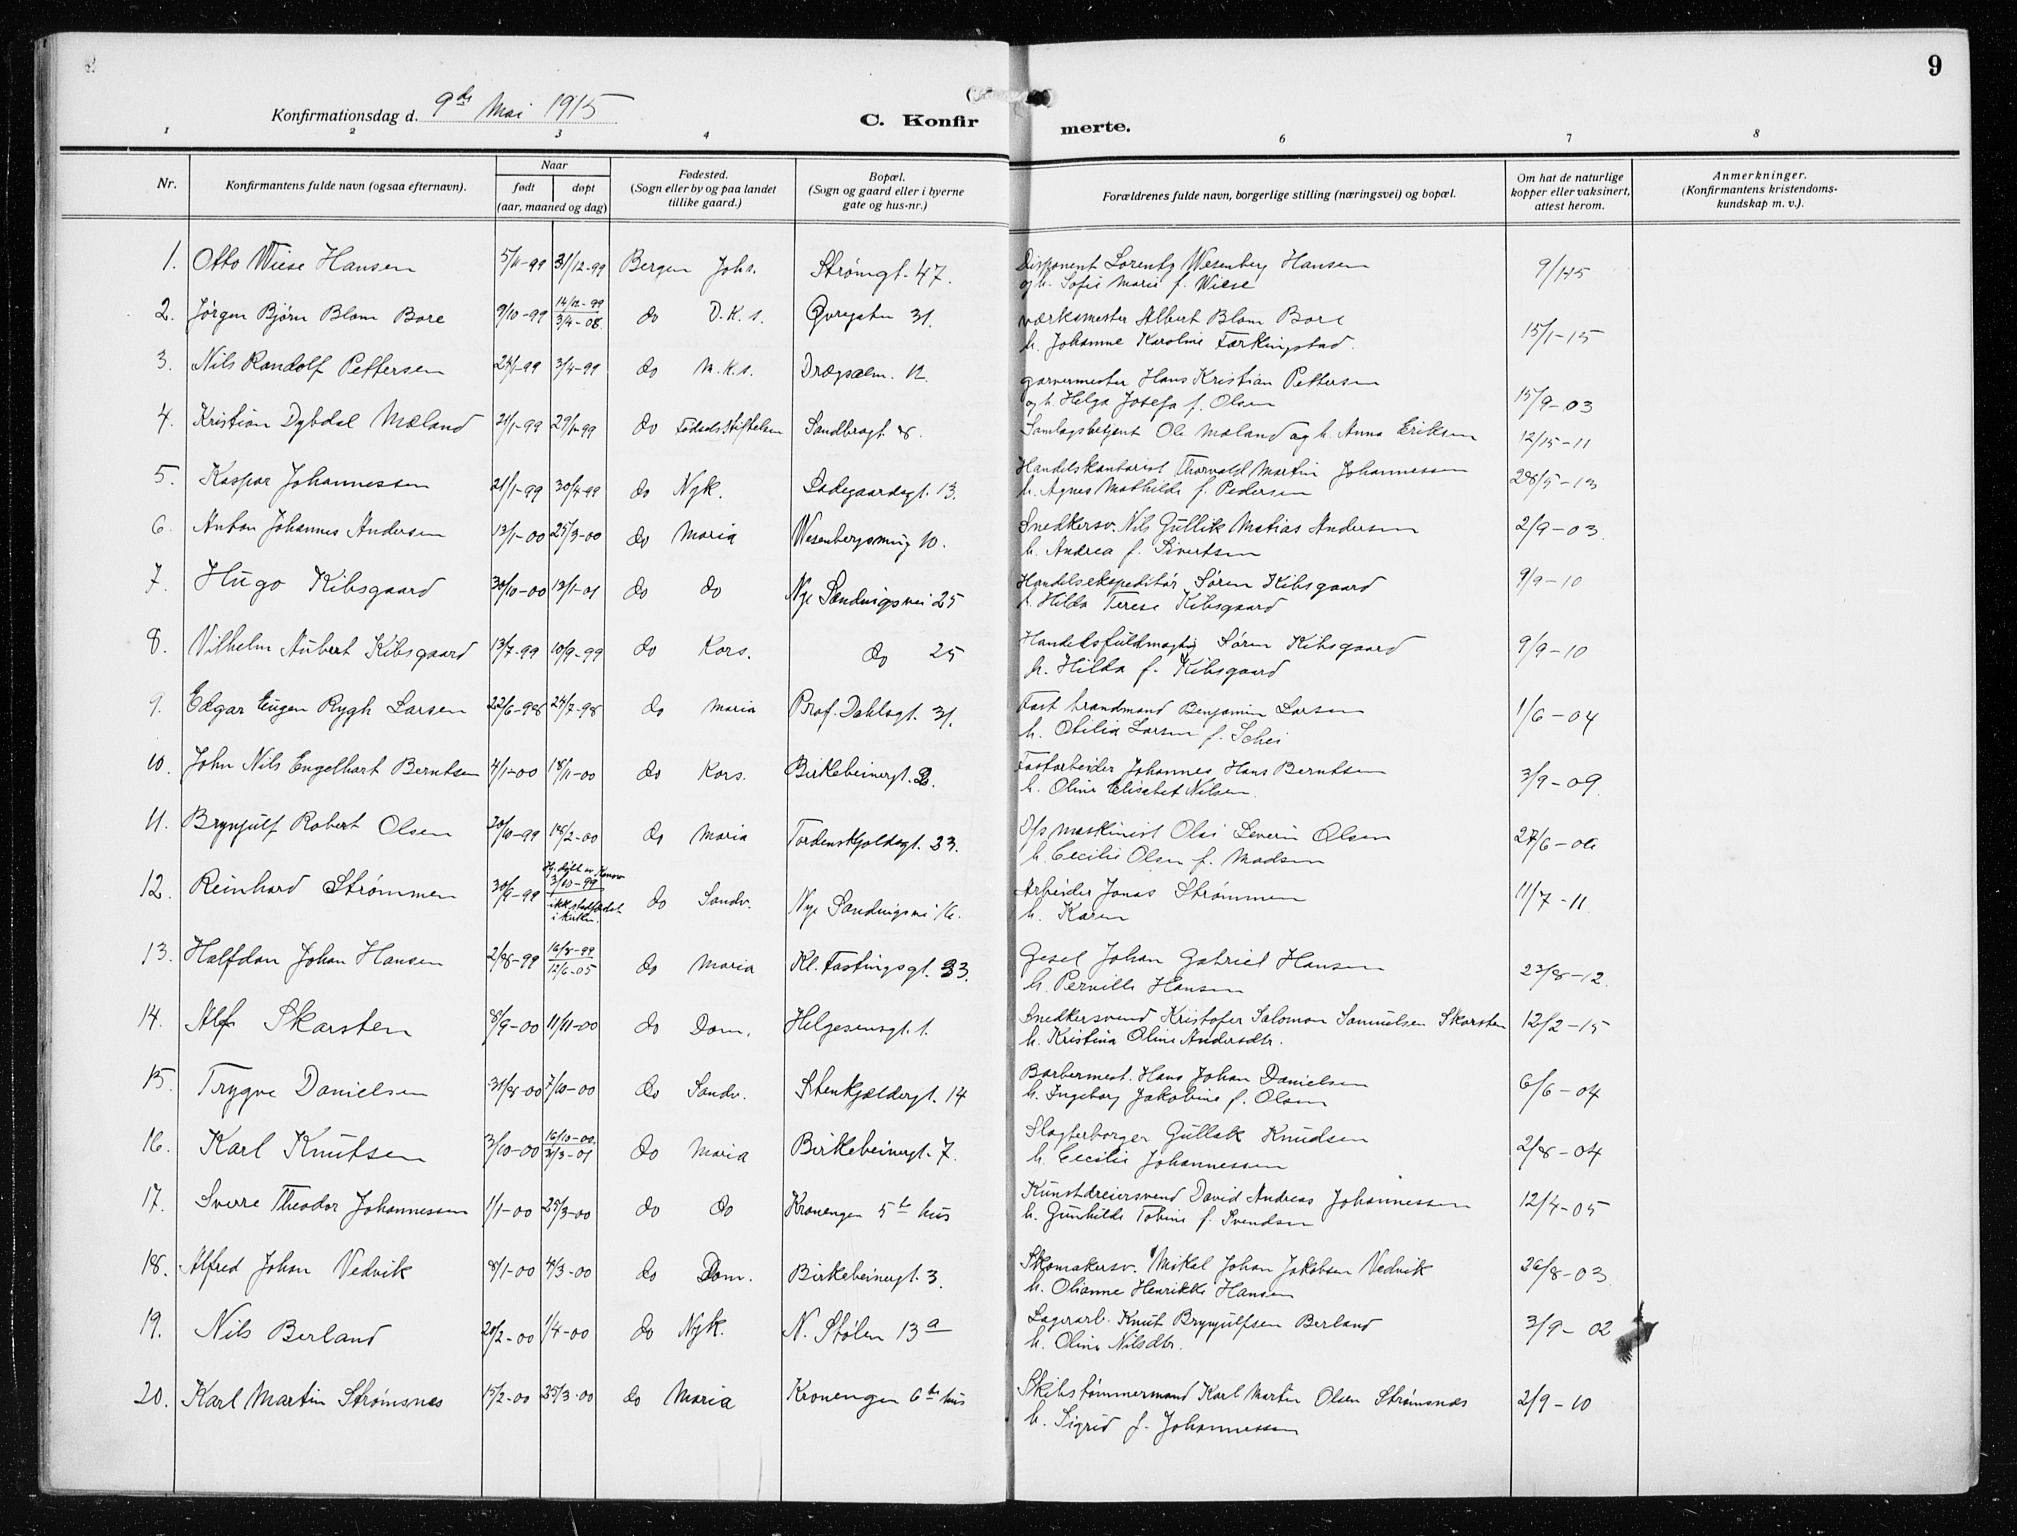 9
Konfirmationsdag d. 9de Mai 1915
C. Konfir merte.
1 2 3 4 6 7 8
Nr. Konfirmantens fulde navn (ogsaa efternavn). Naar født døpt (aar, maaned og dag) Fødested. (Sogn eller by og paa landet tillike gaard.) Bopæl. (Sogn og gaard eller i byerne gate og hus-nr.) Forældrenes fulde navn, borgerlige stilling (næringsvei) og bopæl. Om hat de naturlige kopper eller vaksinert, attest herom. Anmerkninger. (Konfirmantens kristendoms-kundskap m. v.).
1. Otto Wiese Hansen 5/11-99 31/12-99 Bergen Johs. Strømgt. 47. Disponent Lorentz Wesenberg Hansen
og h. Sofie Marie f. Wiese
2. Jørgen Bjørn Blom Bore 9/10-99 14/12-99 3/4-08. do D.K.s. Øvregaten 31. Værksmester Albert Blom Bore 15/1-15
h. Johanne Karoline Færkingstad.
3. Nils Randolf Pettersen 24/1-99 3/4-99 do M.K.s. Drægsalm. 12. garvermester Hans Kristian Pettersen 15/9-03
og h. Helga Josefa f. Olsen
4. Kristian Dybdal Mæland 21/1-99 29/1-99 do Fødselsstiftelsen Sandbrogt. 8. Samlagsbetjent Ole Mæland og h. Anna Eriksen 12/15-11
5. Kaspar Johannessen 21/1-99 30/4-99 do Nyk. Ladegaardsgt. 13. Handelskontorist Thorvald Martin Johannessen 28/5-13
h. Agnes Mathilde f. Pedersen
6. Anton Johannes Andersen 13/1-00 25/3-00 do Maria Wesenbergsmug 10. Snedkersv. Nils Gullik Matias Andersen 2/9-03.
h. Andrea f. Sivertsen
7. Hugo Kibsgaard 30/10-00 13/1-01 do do Nye Sandvigsvei 25 Handelsekspeditør Søren Kibsgaard 9/9-10
h. Hilda Terese Kibsgaard
8. Vilhelm Aubert Kibsgaard 13/7-99 10/9-99 do Kors. do 25 Handelsfuldmægtig Søren Kibsgaard 9/9-10
h. Hilda f. Kibsgaard
9. Edgar Eugen Rygh Larsen 22/6-98 24/7-98 do Maria Prof. Dahlsgt. 31. Fast brandmand Benjamin Larsen 1/6-04
h. Otilia Larsen f. Schei
10. John Nils Engelhart Berntsen 4/1-00 18/11-00 do Kors. Birkebeinergt. Fastarbeider Johannes Hans Berntsen 3/9-09.
h. Oline Elisebet Nilsen.
11. Brynjulf Robert Olsen 20/10-99 18/2-00 do Maria Tordenskjoldsgt. 33. D/s maskinist Olai Severin Olsen
h. Cecilie Olsen f. Madsen
12. Reinhard Strømmen 30/9-99 3/10-99 ikke stadfæstet i kirken. do Sandv. Nye Sandvigsvei 16. Arbeider Jonas Strømmen 11/7-11
h. Karen
13. Halfdan Johan Hansen 2/8-99 16/8-99 12/6-05 do Maria Kl. Fastingsgt. 33. Gesel Johan Gabriel Hansen 23/8-12.
h. Pernille Hansen
14. Alf Skarsten 8/9-00 11/11-00 do Dom. Helgesensgt. 1. Snedkersvend Kristofer Salomon Samuelsen Skarsten 12/2-15
h. Kristina Oline Andersdtr.
15. Trygve Danielsen 31/8-00 7/10-00 do Sandv. Stenkjeldergt. 14 Barbermest. Hans Johan Danielsen 6/6-04
h. Ingeborg Jakobine f. Olsen
16. Karl Knutsen 3/10-00 16/10-00. 31/3-01 do Maria Birkebeinergt. 7. Slagterborger Gullak Knudsen 2/8-04
h. Cecilie Johannessen
17. Sverre Theodor Johannessen 1/1-00 25/3-00 do do Kronengen 5te hus Kunstdreiersvend David Andreas Johannessen 12/4-05
h. Gunhilde Tobine f. Svendsen
18. Alfred Johan Vedvik 8/1-00 4/3-00 do Dom. Birkebeinergt. 3. Skomakersv. Mikal Johan Jakobsen Vedvik 26/8-03.
h. Olianne Henrikke Hansen
19. Nils Berland 20/2-00 1/4-00 do Nyk. N. Stølen 13a Lagerarb. Knut Brynjulfsen Berland 3/9-02
h. Oline Nilsdtr.
20. Karl Martin Strømsnes 15/2-00 25/3-00 do Maria Kronengen 6te hus Skibstømmermand Karl Martin Olsen Strømsnes 2/9-10
h. Sigrid f. Johannessen